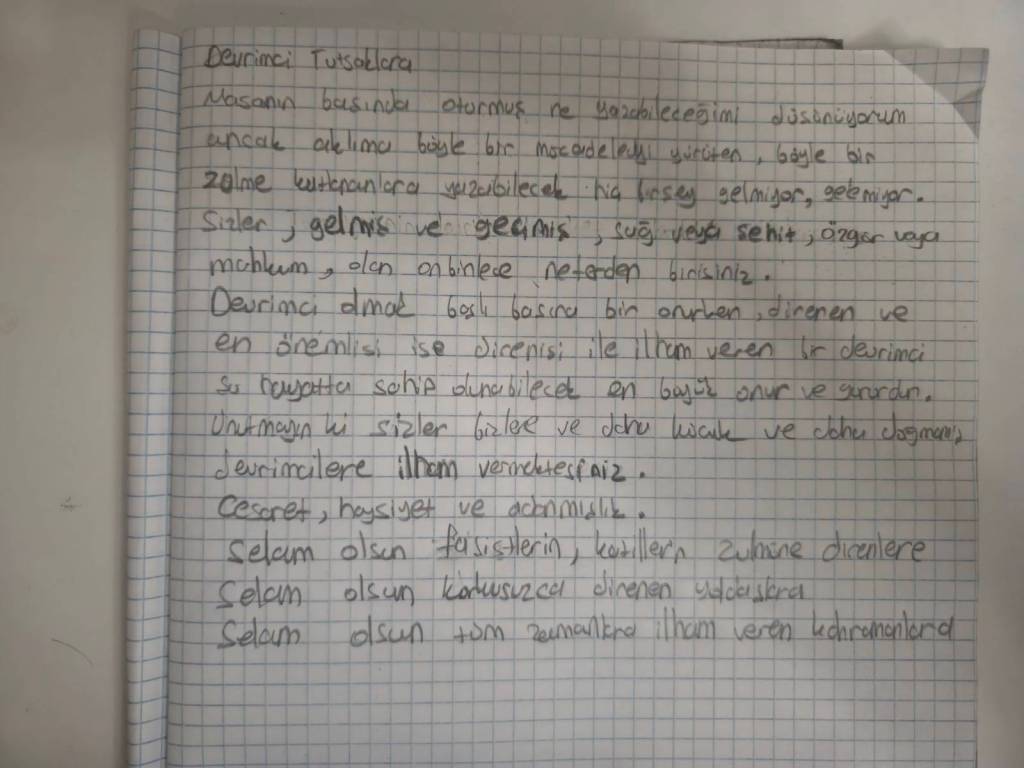 Devrimci Tutsaklara
Masanın başında oturmuş ne yazabileceğimi düşünüyorum
ancak aklıma böyle bir mücadeleyi yürüten, böyle bir
zulme kalkanlara yazabilecek hiç birşey gelmiyor, gelemiyor.
Sizler, gelmiş ve geçmiş, sağ veya şehit, özgür veya
mahkum, olan onbinlerce neferden birisiniz.
Devrimci olmak başlı başına bir onurken, direnen ve
en önemlisi ise direnişi ile ilham veren bir devrimci
şu hayatta sahip olunabilecek en büyük onur ve gururdur.
Unutmayın ki sizler bizlere ve daha küçük ve daha doğmamış
devrimcilere ilham vermektesiniz.
Cesaret, haysiyet ve adanmışlık.
Selam olsun faşistlerin, katillerin zulmüne direnlere
Selam olsun korkusuzca direnen yoldaşlara
Selam olsun tüm zamanlara ilham veren kahramanlara